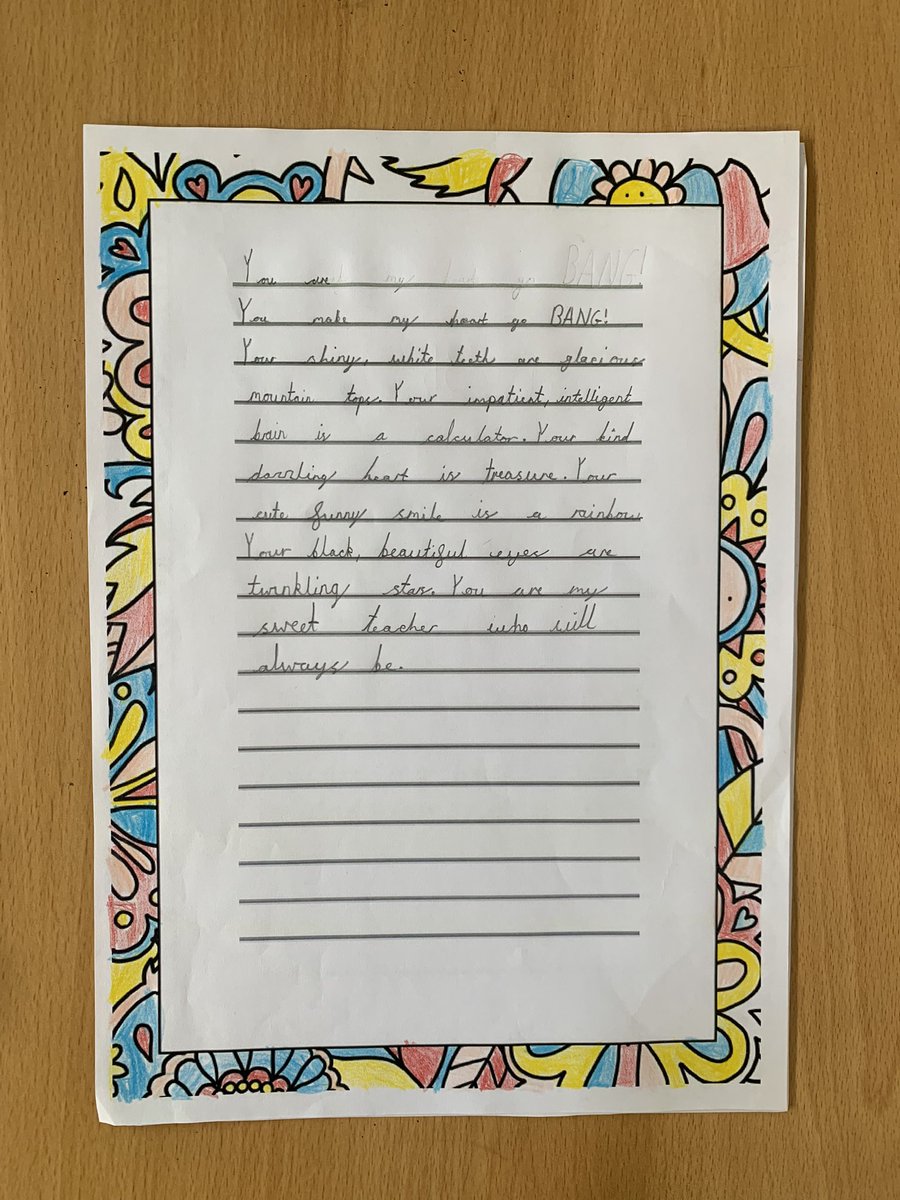 You are my heart go BANG!
You make my heart go BANG!
Your shiny, white teeth are glacious
mountain tops. Your impatient, intelligent
brain is a calculator. Your kind
dazzling heart is treasure. Your
cute funny smile is a rainbow.
Your black, beautiful eyes are
twinkling stars. You are my
sweet teacher who will
always be.